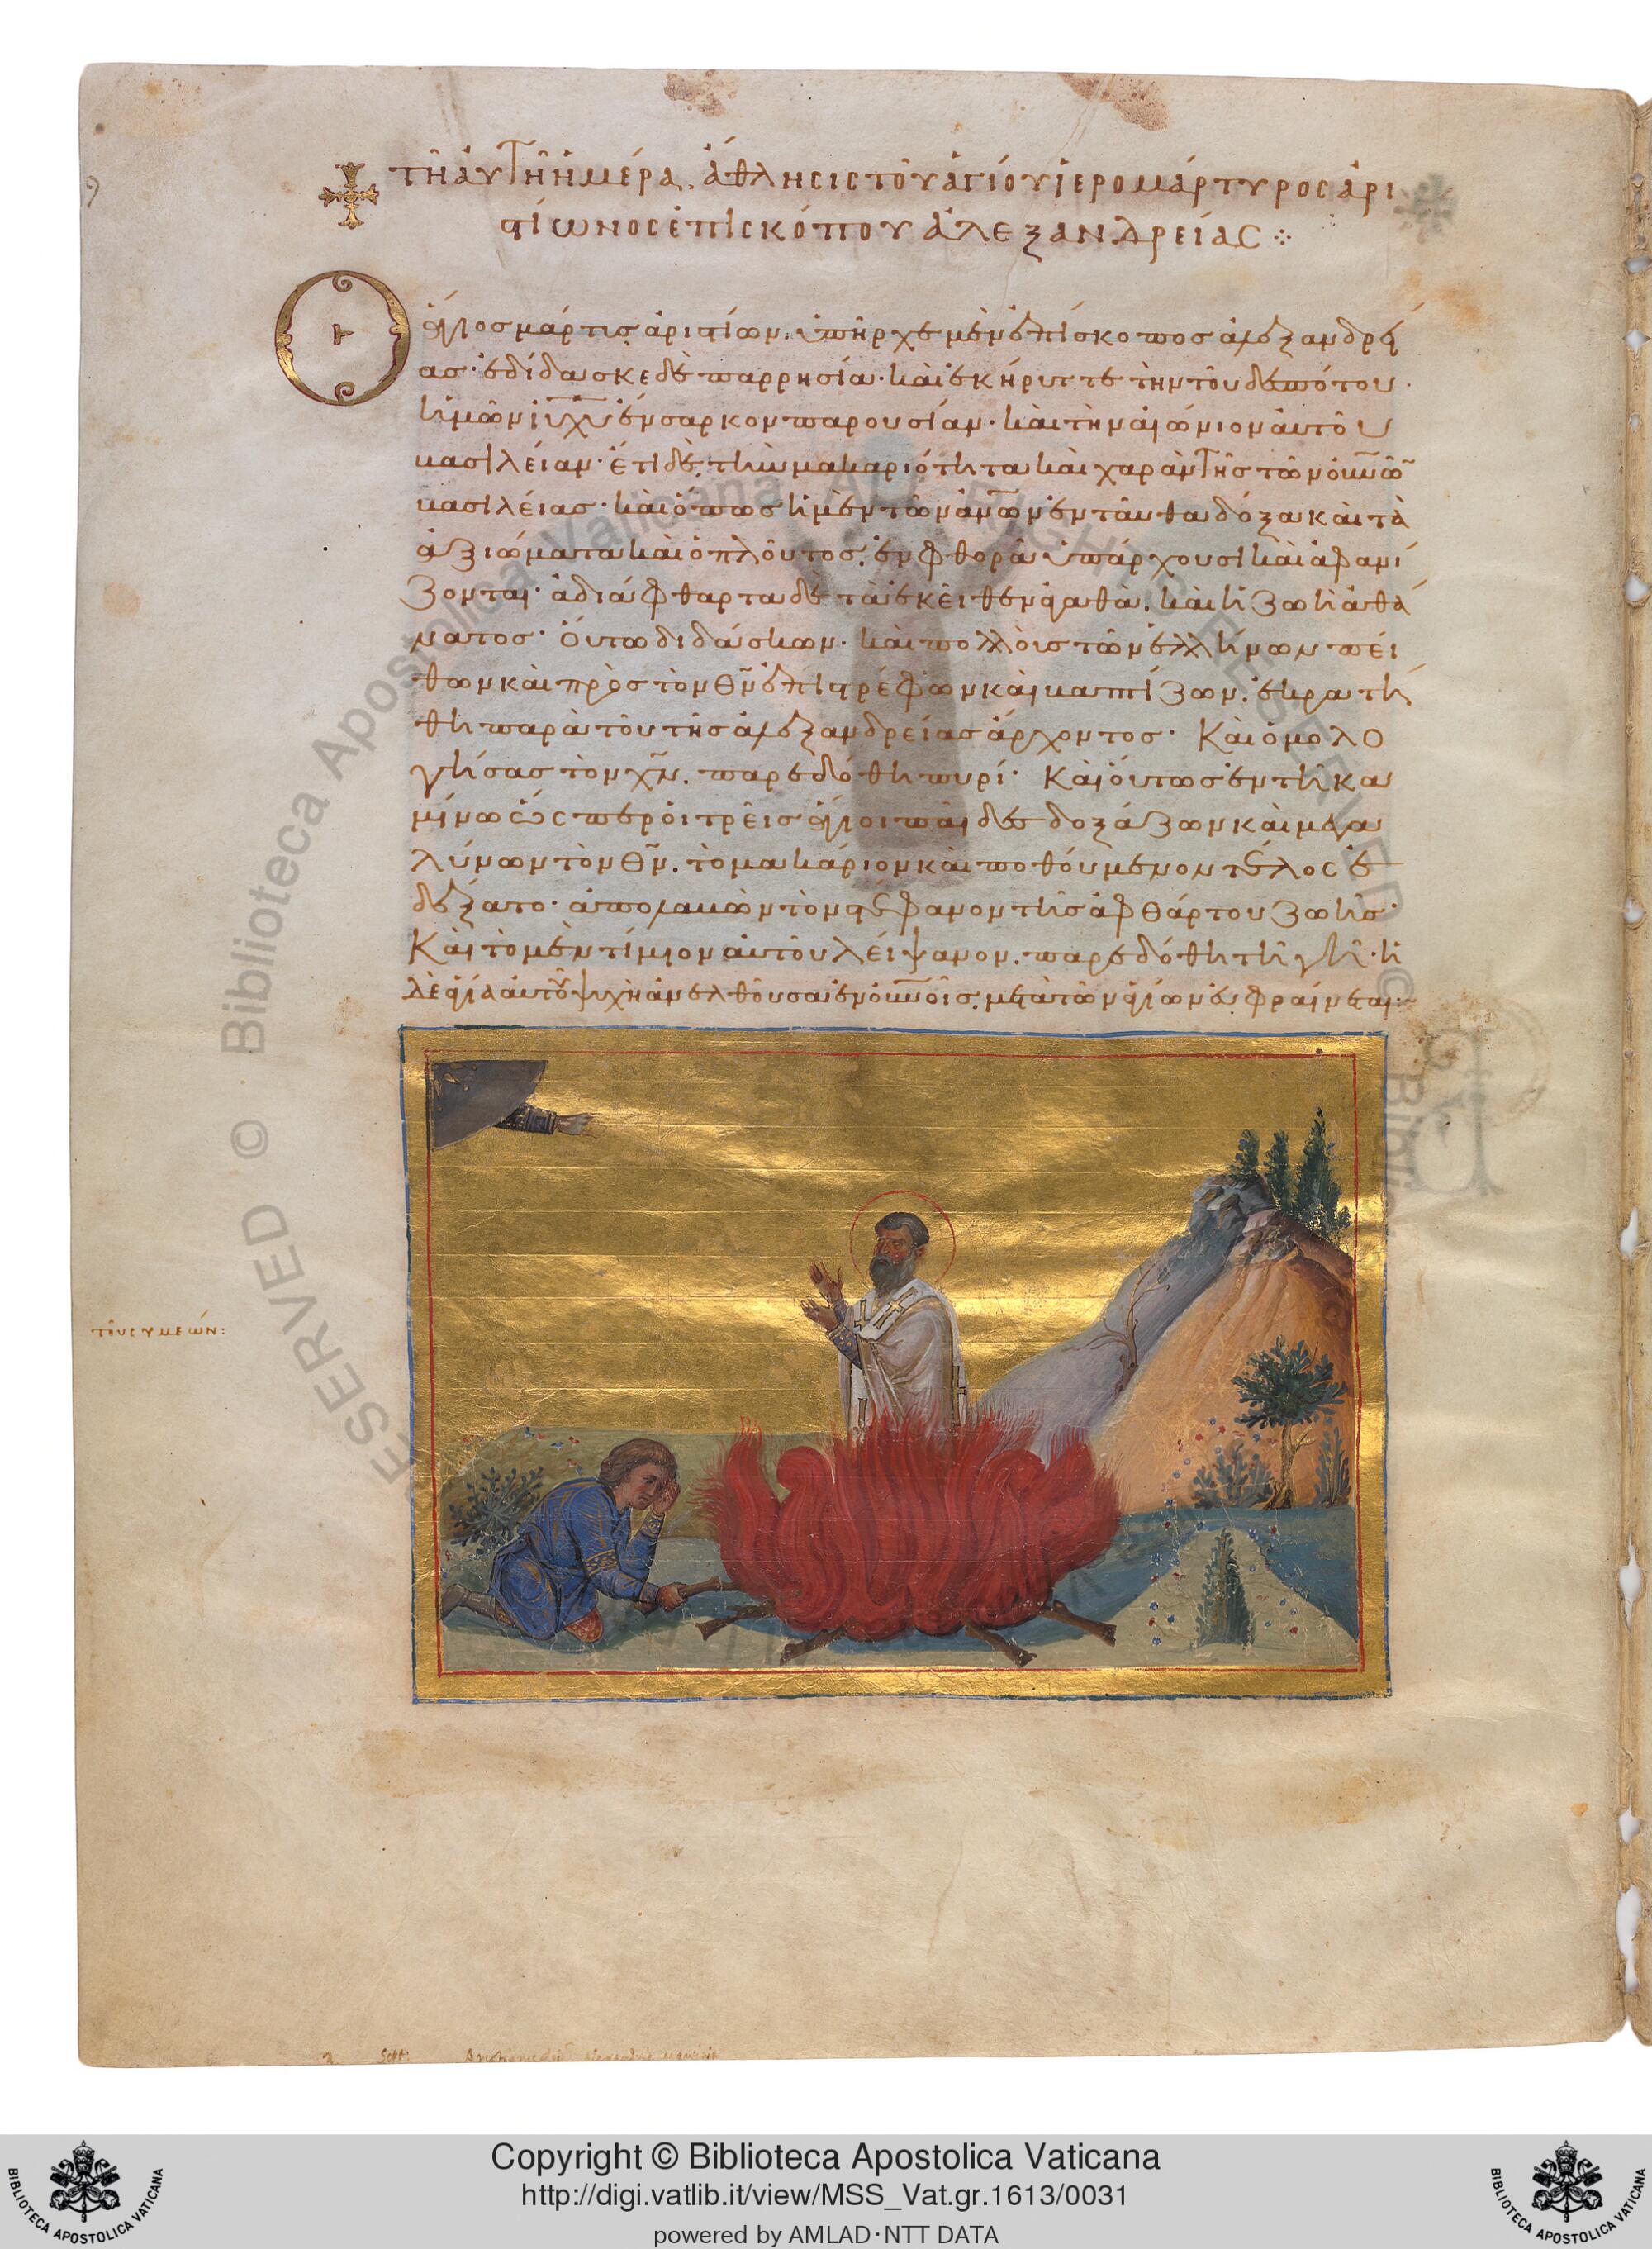 τῆ αὐτῆ ἡμέρα. ἄθλησις τοῦ ἁγίου ἱερομάρτυρος ἀρι
στίωνος ἐπισκόπου ἀλεξανδρείας
Ὁ ἅγιος μάρτυς ἀριστίων. ὑπῆρχε μὲν ἐπίσκοπος ἀλεξανδρεί
ας· ἐδίδασκε δὲ παρρησία· καὶ ἐκήρυττε τὴν τοῦ δεσπότου
ἡμῶν ἰυ χυ ἔνσαρκον παρουσίαν· καὶ τὴν αἰώνιον αὐτοῦ
βασιλείαν· ἔτι δὲ τὴν μακαριότητα καὶ χαρὰν τῆς τῶν οὐνῶν
βασιλείας· καὶ ὅπως ἡ μὲν τῶν ἀνων ἐνταῦθα δόξα καὶ τὰ
ἀξιώματα καὶ ὁ πλοῦτος. ἐν φθορᾶ ὑπάρχουσι καὶ ἀφανί
ζονται· ἀδιάφθαρτα δὲ τὰ ἐκεῖθεν ἀγαθὰ. καὶ ἡ ζωὴ ἀθά
νατος· Οὕτω διδάσκων· καὶ πολλοὺς τῶν ἑλλήνων πεί
θων καὶ πρὸς τὸν θν ἐπιστρέφων καὶ βαπτίζων. ἐκρατή
θη παρὰ τοῦ τῆς ἀλεξανδρείας ἄρχοντος· Καὶ ὁμολο
γήσας τὸν χν. παρεδόθη πυρί· Καὶ οὕτως ἐν τῆ κα
μίνω ὥσπερ οἱ τρεῖς ἅγιοι παῖδες δοξάζων καὶ μεγα
λύνων τὸν θν. τὸ μακάριον καὶ ποθούμενον τέλος ἐ
δέξατο· ἀπολαβὼν τὸν στέφανον τῆς ἀφθάρτου ζωῆς·
Καὶ τὸ μὲν τίμιον αὐτοῦ λείψανον. παρεδόθη τῆ γῆ· ἡ
δὲ ἁγία αὐτοῦ ψυχὴ ἀνελθοῦσα ἐν οὐνοῖς. μετὰ τῶν ἁγίων εὐφραίνεται
τοῦ συμεών:
Biblioteca Apostolica Vaticana ALL RIGHTS RESERVED ©
Copyright © Biblioteca Apostolica Vaticana
http://digi.vatlib.it/view/MSS_Vat.gr.1613/0031
powered by AMLAD·NTT DATA
BIBLIOTECA APOSTOLICA VATICANA
BIBLIOTECA APOSTOLICA VATICANA